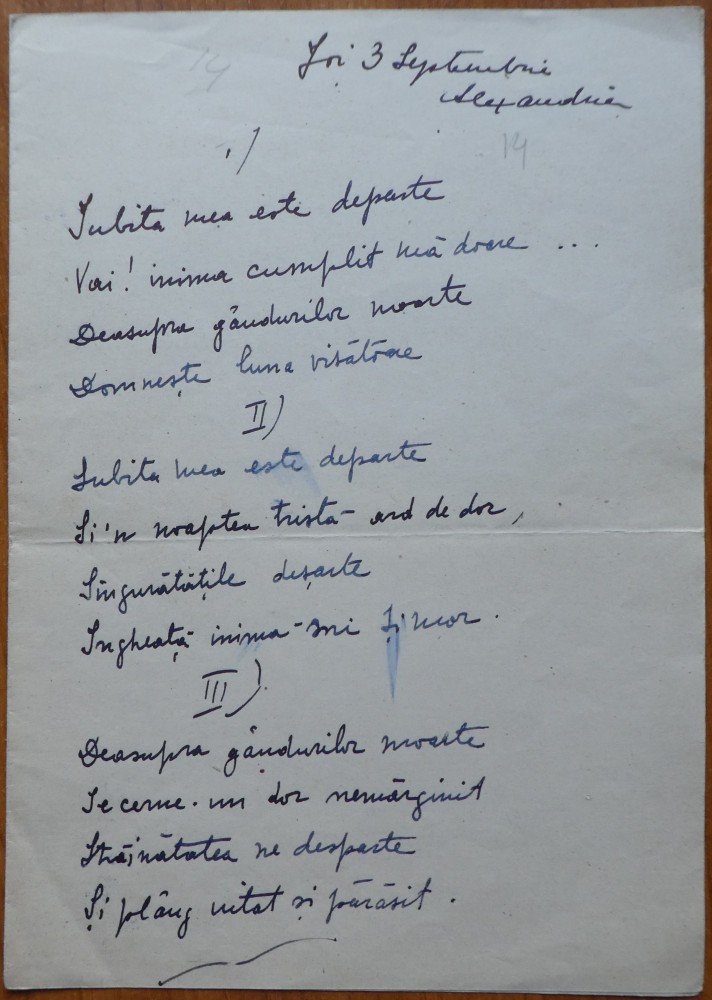 14
Joi 3 Septembrie
Alexandria
14
I)
Iubita mea este departe
Vai! inima cumplit mă doare ...
Deasupra gândurilor moarte
Domnește luna visătoare
II)
Iubita mea este departe
Și'n noaptea tristă ard de dor,
Singurătățile deșarte
Îngheață inima-mi și mor.
III)
Deasupra gândurilor moarte
Se cerne un dor nemărginit
Străinătatea ne desparte
Și plâng uitat și părăsit.